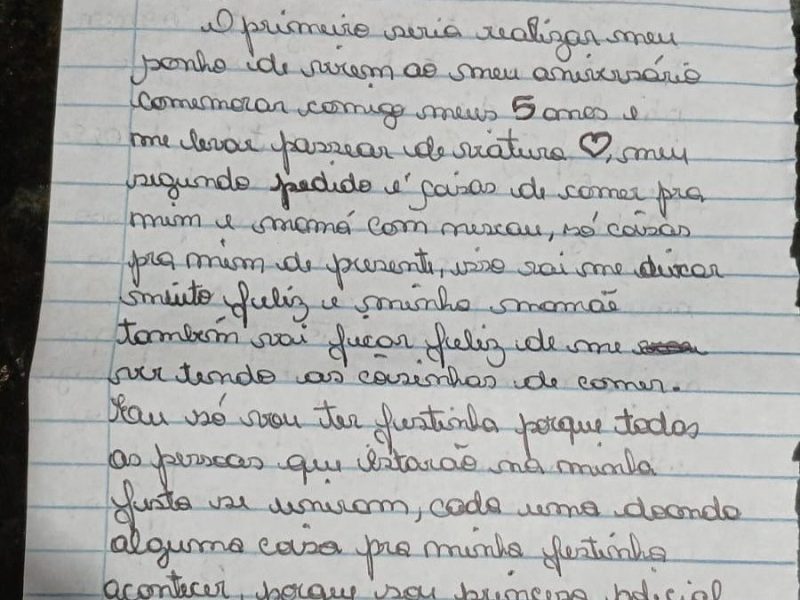 O primeiro seria realizar meu
sonho de virem ao meu aniversário
comemorar comigo meus 5 anos e
me levar passear de viatura ♡, meu
segundo pedido é coisas de comer pra
mim e mamá com nescau, só coisas
pra mim de presente, isso vai me deixar
muito feliz e minha mamãe
também vai ficar feliz de me
ver tendo as coisinhas de comer.
Eau só vou ter festinha porque todas
as pessoas que estarão na minha
festa se uniram, cada uma doando
alguma coisa pra minha festinha
acontecer, porque sou princesa policial